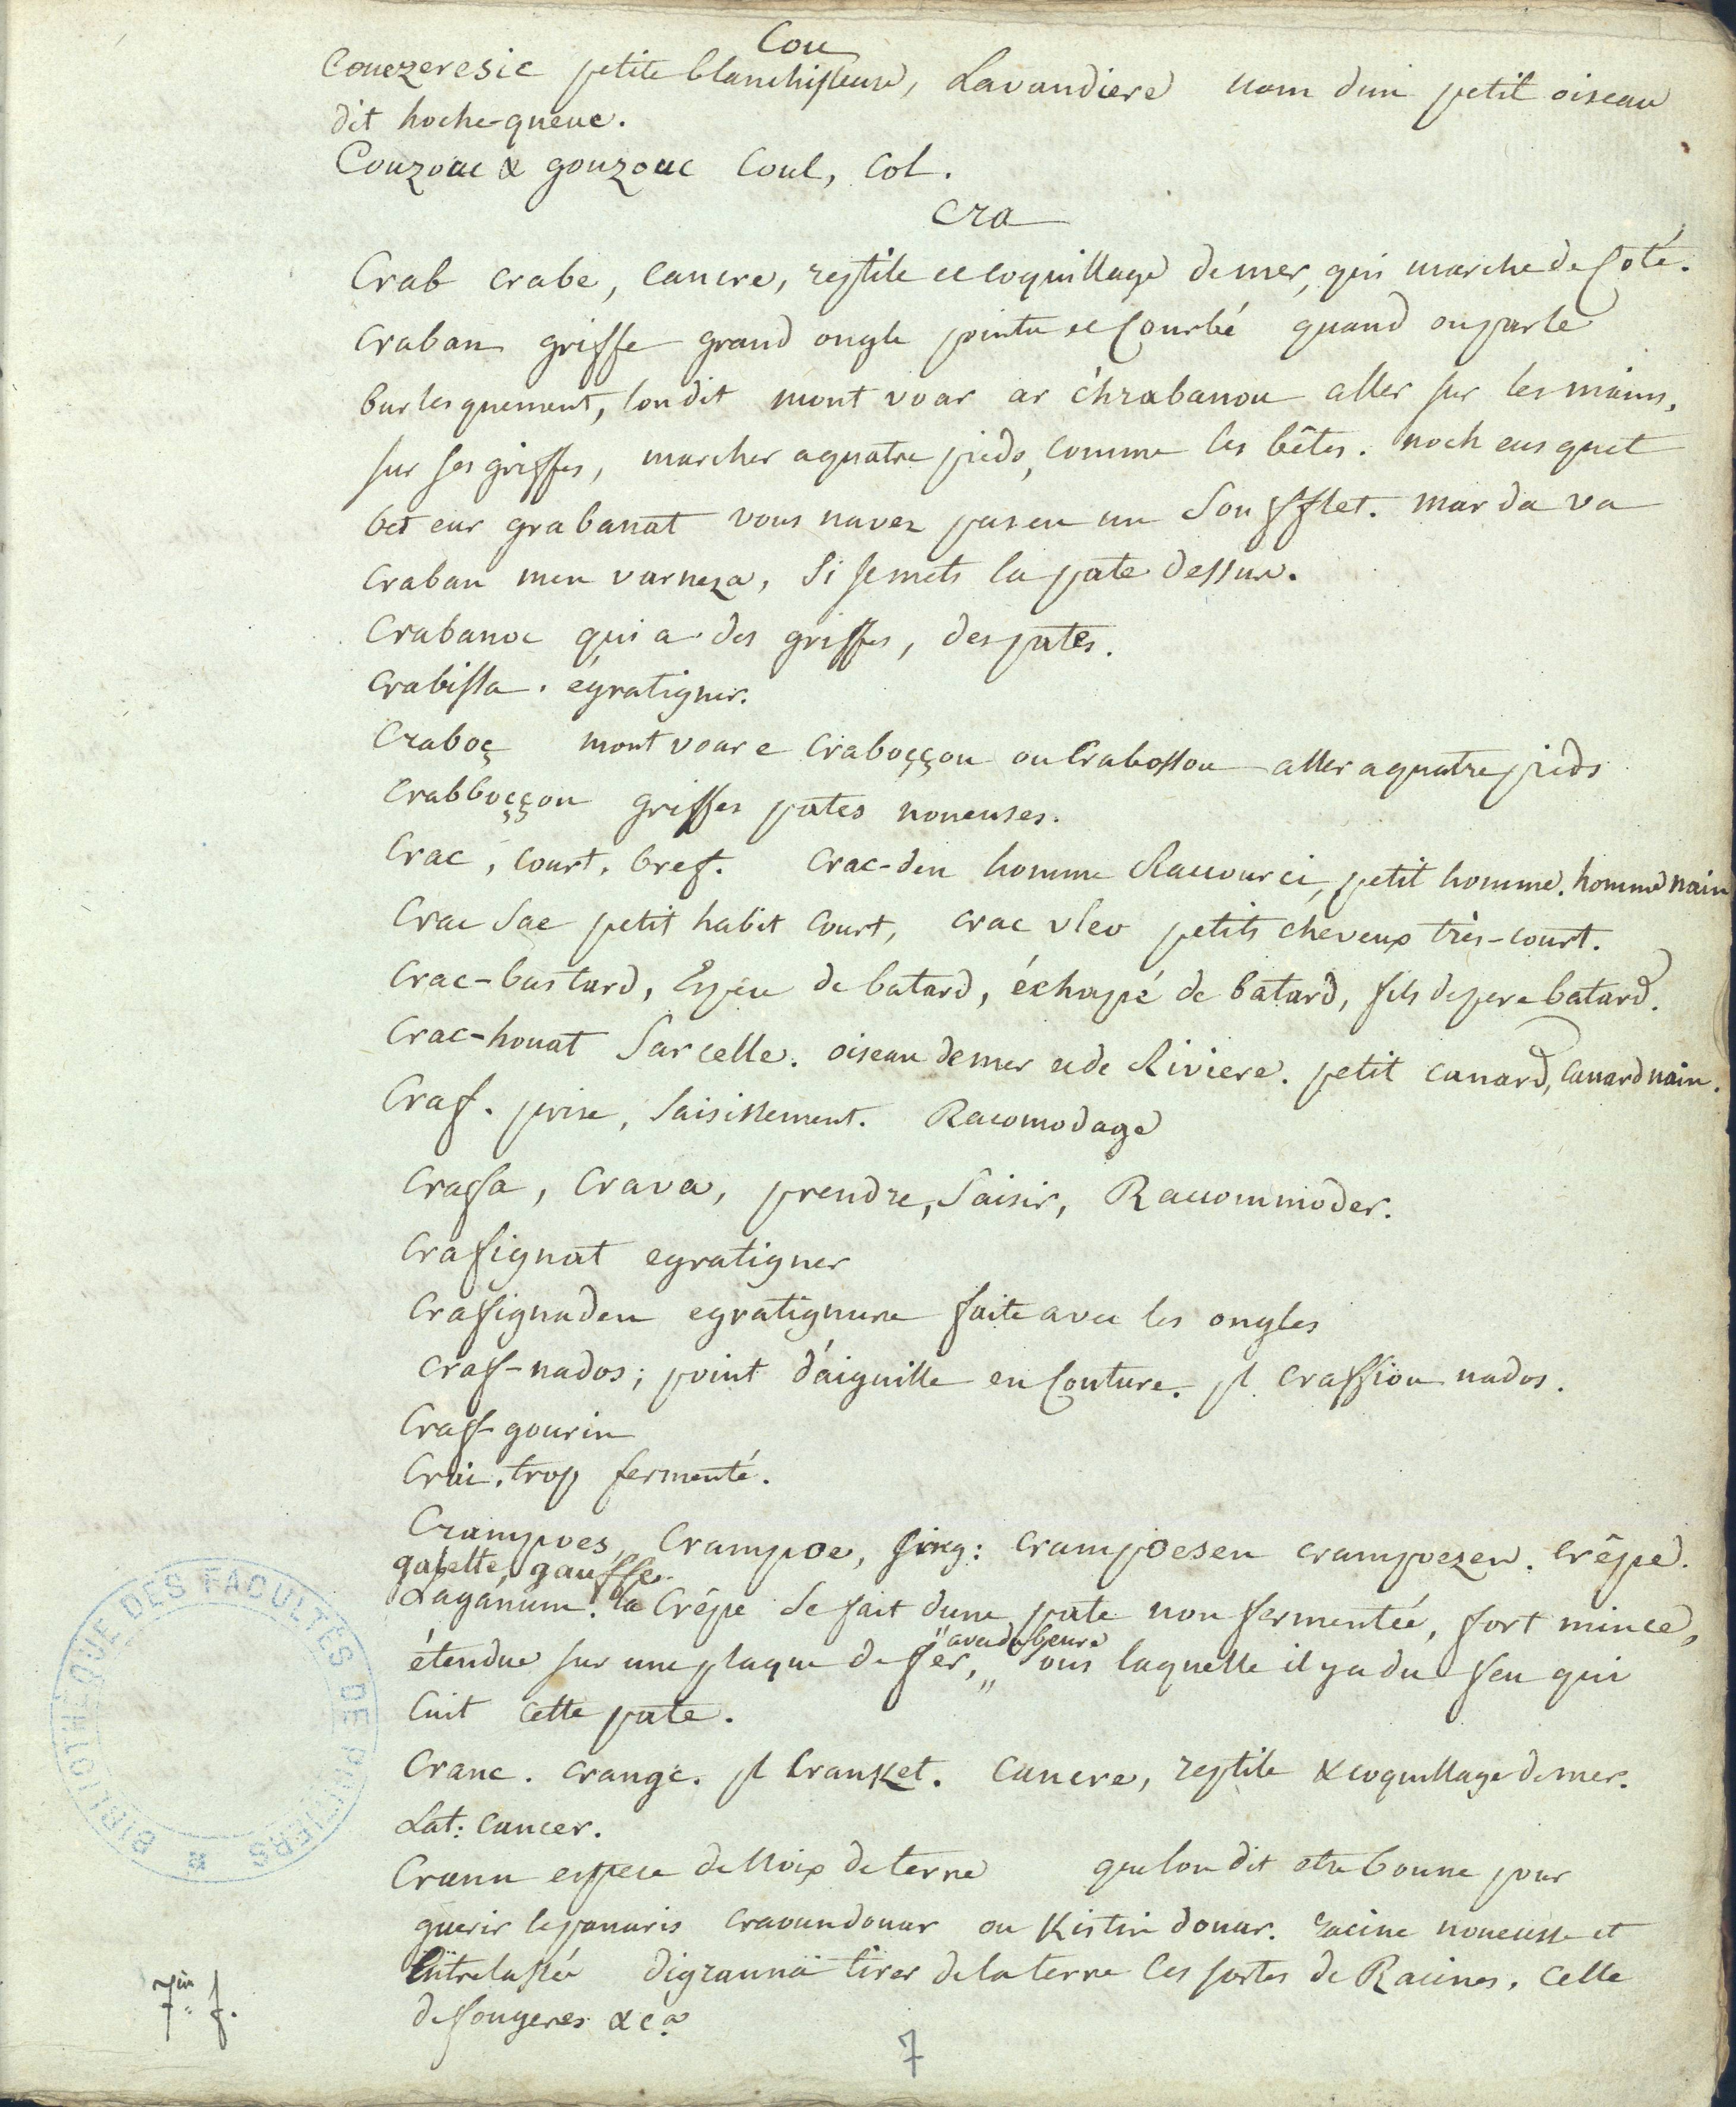 Cou
Couezeresic petite blanchisseuse, Lavandiere nom d'un petit oiseau
dit hoche-queue.
Couzouc & gouzouc Coul, Col.
Cra
Crab crabe, cancre, reptile et coquillage de mer, qui marche de Coté.
Craban griffe grand ongle pointu et Courbé quand on parle
burlesquement, lon dit mont voar ar c'hrabanou aller sur les mains,
sur ses griffes, marcher a quatre pieds, comme les bêtes. noch eus quet
bet eur grabanat vous navez pas eu un Soufflet. mar da va
Craban men varneza, Si je mets la pate dessus.
Crabanoc qui a des griffes, des pates.
Crabissa. égratigner.
Craboç mont voar e Craboççou ou Crabossou aller a quatre pieds
Crabboççou griffes pates noueuses.
Crac, Court, bref. Crac-den homme Raccourci, petit homme. homme nain
Crac Sae petit habit Court, crac vleo petits cheveux très-court.
Crac-bastard, Espece de batard, échapé de batard, fils de pere batard.
Crac-houat Sarcelle. oiseau de mer et de Riviere. petit canard, Canard nain.
Craf. prise, Saisissement. Racomodage
Craffa, Crava, prendre, Saisir, Raccommoder.
Crafignat egratigner
Crafignaden egratignure faite avec les ongles
Craf-nados; point d'aiguille en Couture. pl. craffiou nados.
Craf-gourin
Crai. trop fermenté.
Crampoes, Crampoe, sing: Crampoesen crampoezen. Crêpe.
galette, gauffre.
Laganum. la Crêpe Se fait dune pate non fermentée, fort mince,
" avec du beure
étendue sur une plaque de fer, " Sous laquelle il y a du feu qui
Cuit cette pate.
Cranc. crangc. pl Cranket. Cancre, reptile & coquillage de mer.
Lat: Cancer.
Crann espece de Noix de terre que lon dit etre bonne pour
guerir le panaris craoundouar ou Kistin douar. racine noueuse et
Entrelassée digranna tirer de la terre Ces sortes de Racines, Celle
de fougeres &ca
7in f.
7
BIBLIOTHEQUE DES FACULTÉS DE POITIERS